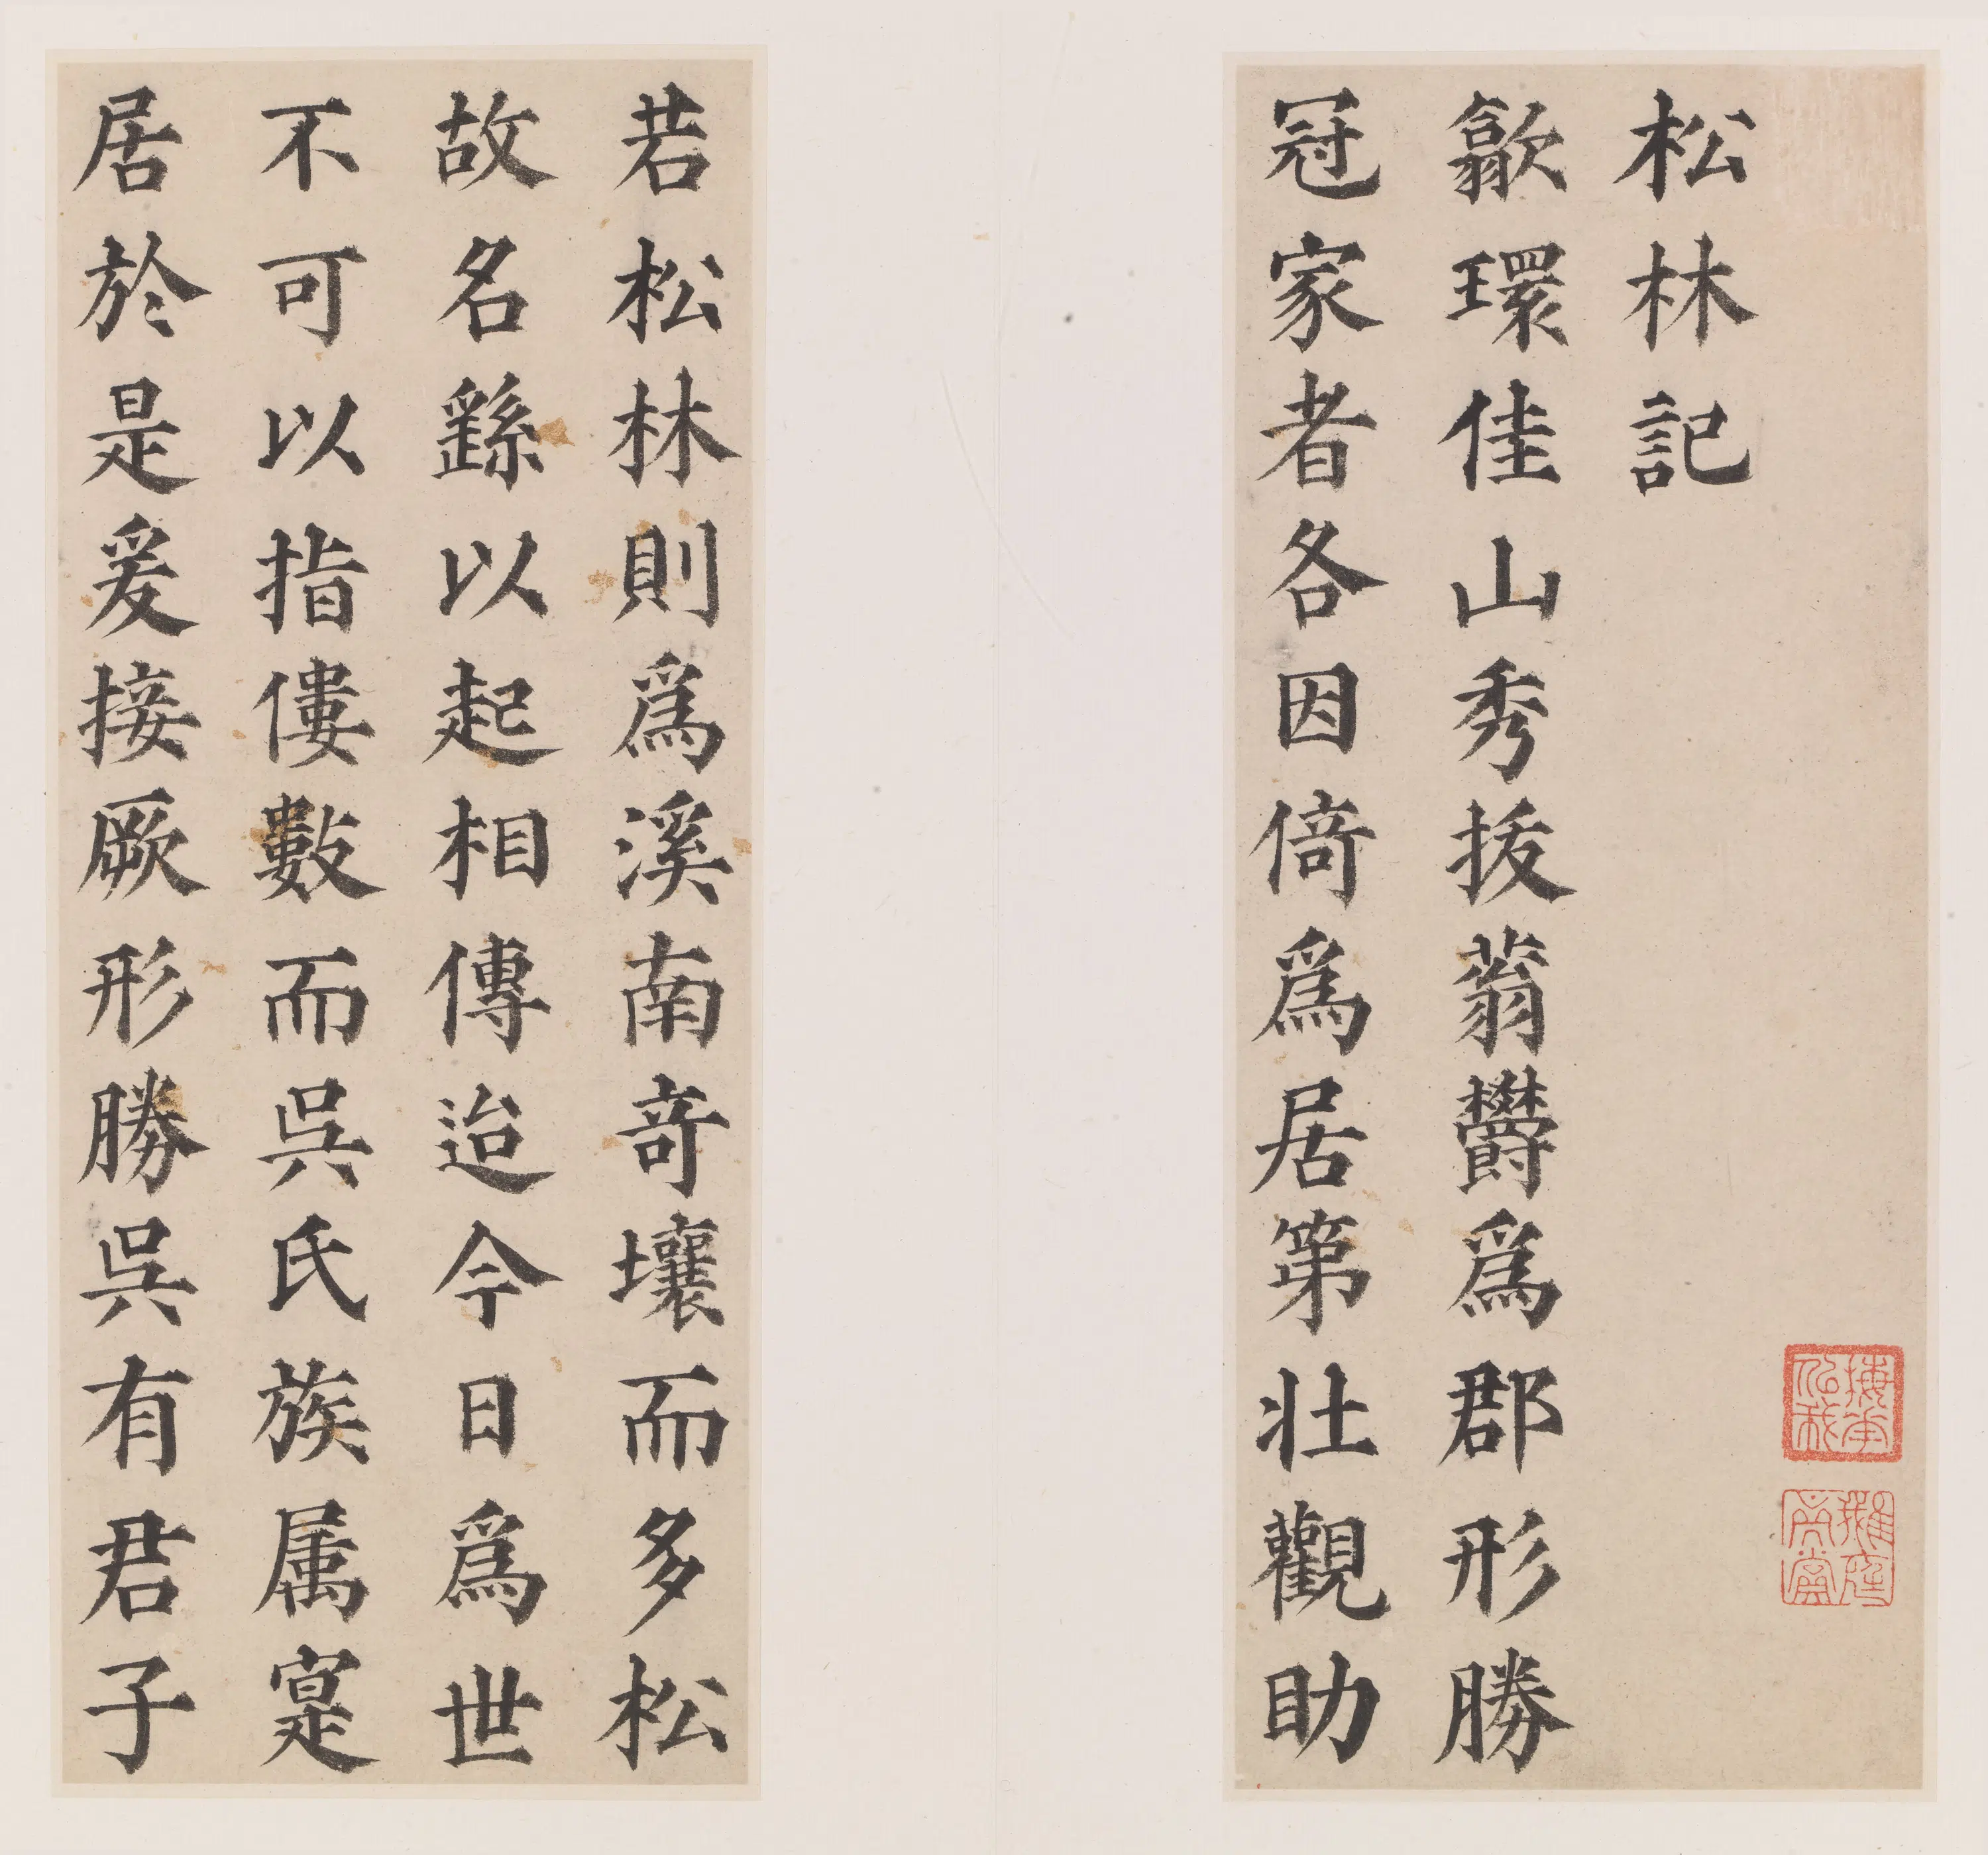 松林記
歙環佳山秀拔蓊欝爲郡形勝
冠家者各因倚爲居第壯觀助
若松林則爲溪南竒壤而多松
故名繇以起相傳迨今日爲世
不可以指僂數而吳氏族属寔
居於是爰接厥形勝吳有君子